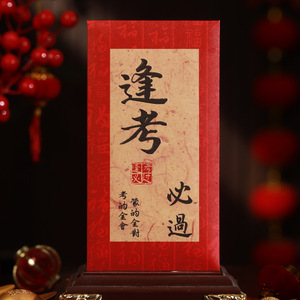 逢考
必過
考的全會
蒙的全對